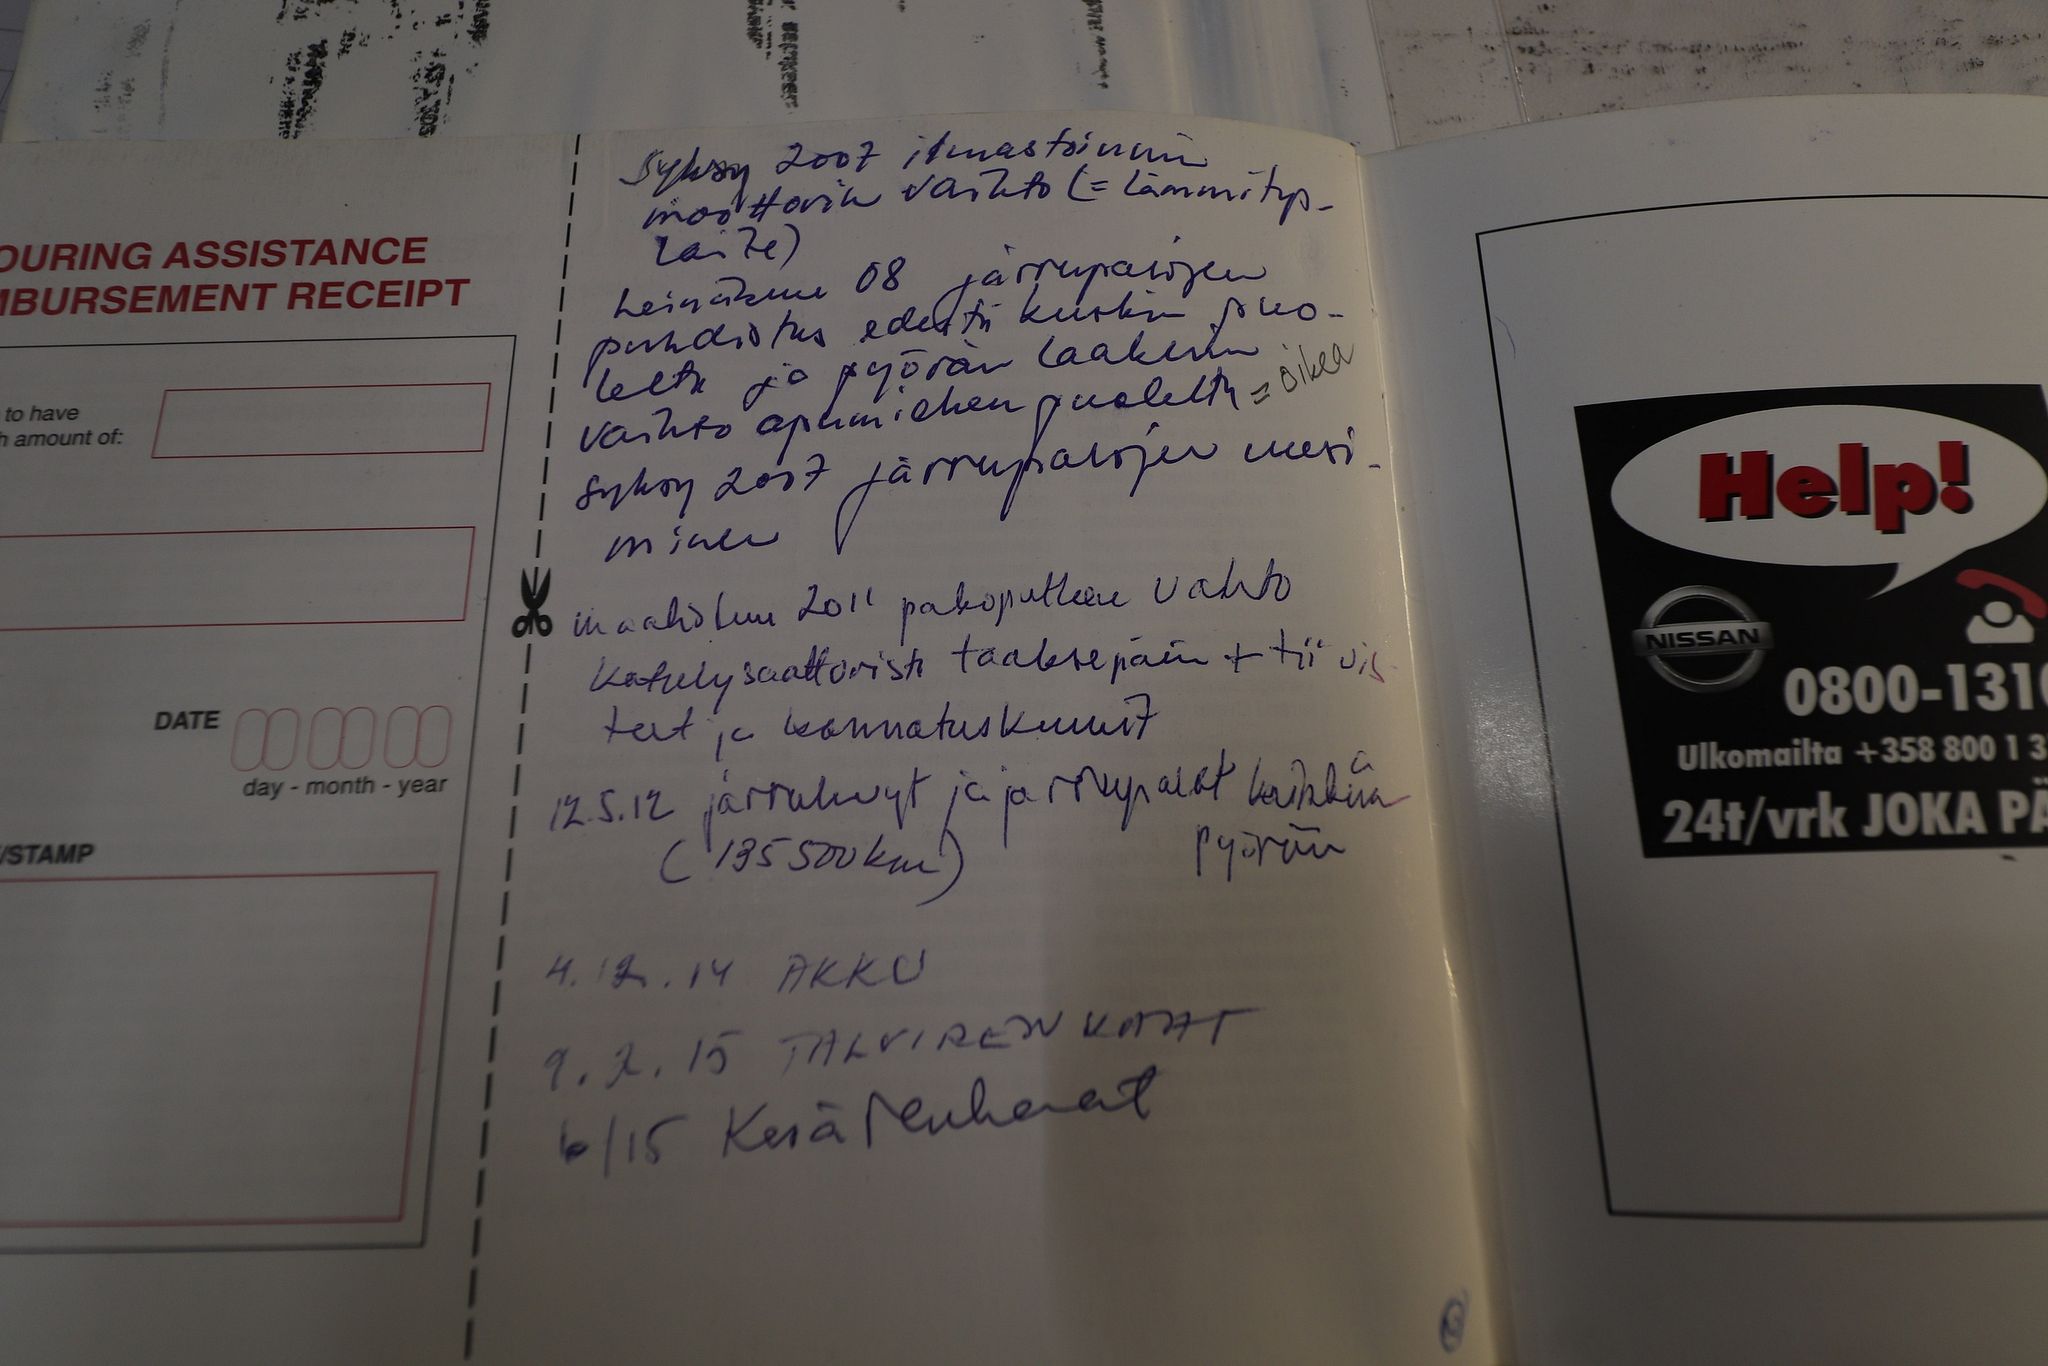 OURING ASSISTANCE
MBURSEMENT RECEIPT
to have
h amount of:
DATE
day - month - year
/STAMP
Syksy 2007 ilmastoinnin
moottorin vaihto (= lämmityp-
laite)
Heinäkuu 08 järrupalojen
puhdistus edestä kuskin puo-
lelta ja pyörän laakerin
vaihto apumiehen puolelta = oikea
Syksy 2007 järrupalojen uusi-
minen
maaliskuu 2011 pakoputken vaihto
Katalysaattorista taaksepäin + tiivis-
teet ja kannatuskumit
12.5.12 jarrulevyt ja jarrupalat kaikkiin
(135500km) pyöriin
4.12.14 AKKU
9.2.15 TALVIRENKAAT
6/15 Kesärenkaat
Help!
NISSAN
0800-1310
Ulkomailta +358 800 1 3
24t/vrk JOKA PÄ